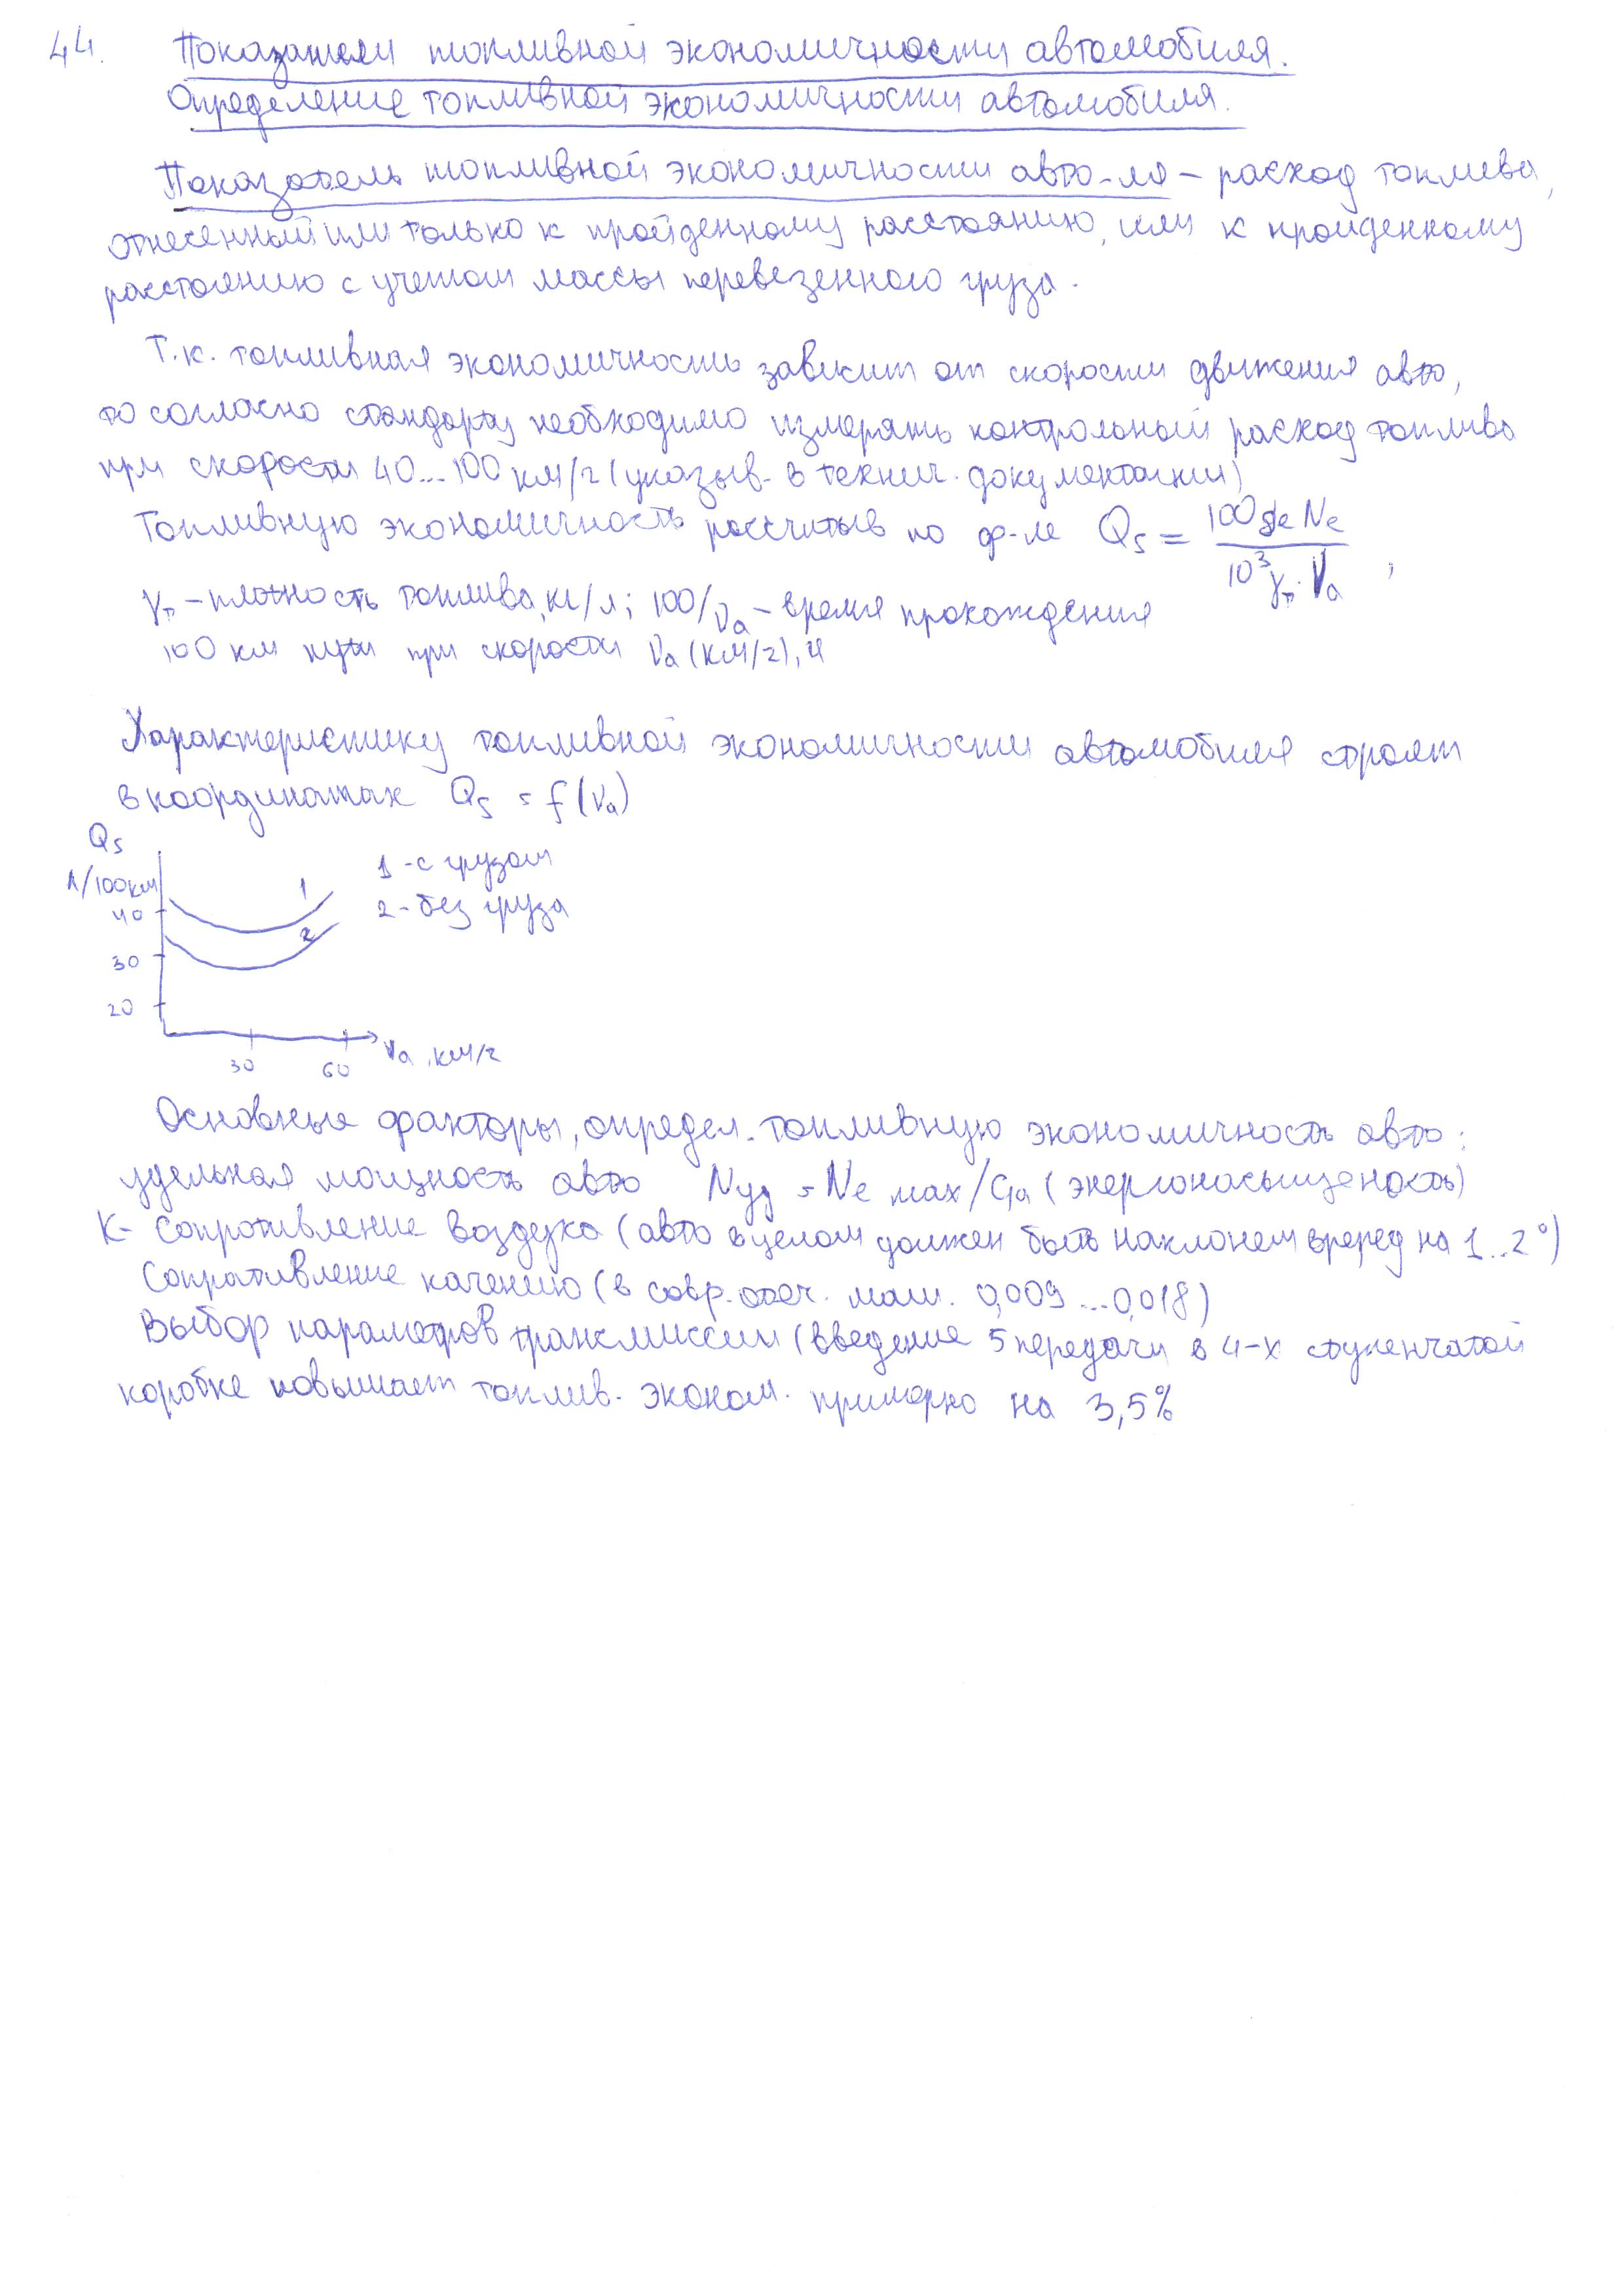 44. Показатели топливной экономичности автомобиля.
Определение топливной экономичности автомобиля.
Показатель топливной экономичности авто-ля – расход топлива,
отнесенный или только к пройденному расстоянию, или к пройденному
расстоянию с учетом массы перевезенного груза.
Т.к. топливная экономичность зависит от скорости движения авто,
то согласно стандарту необходимо измерять контрольный расход топлива
при скорости 40...100 км/г (указыв. в технич. документации)
Топливную экономичность рассчитыв по ф-ле Qs = 100 ge Ne / 10³ γт · Va ,
γт – плотность топлива, кг/л; 100/Va – время прохождения
100 км пути при скорости Va (км/г), ч
Характеристику топливной экономичности автомобиля строят
в координатах Qs = f(Va)
Qs
л/100км
40
30
20
1
2
30
60
Va, км/г
1 - с грузом
2 - без груза
Основные факторы, определ. топливную экономичность авто:
удельная мощность авто Nуд = Ne max/Ga (энергонасыщеность)
К- Сопротивление воздуха (авто в целом должен быть наклонен вперед на 1...2°)
Сопративление качению (в совр. отеч. маш. 0,009...0,018)
Выбор параметров трансмиссии (введение 5 передачи в 4-х ступенчатой
коробке повышает топлив. эконом. примерно на 3,5%